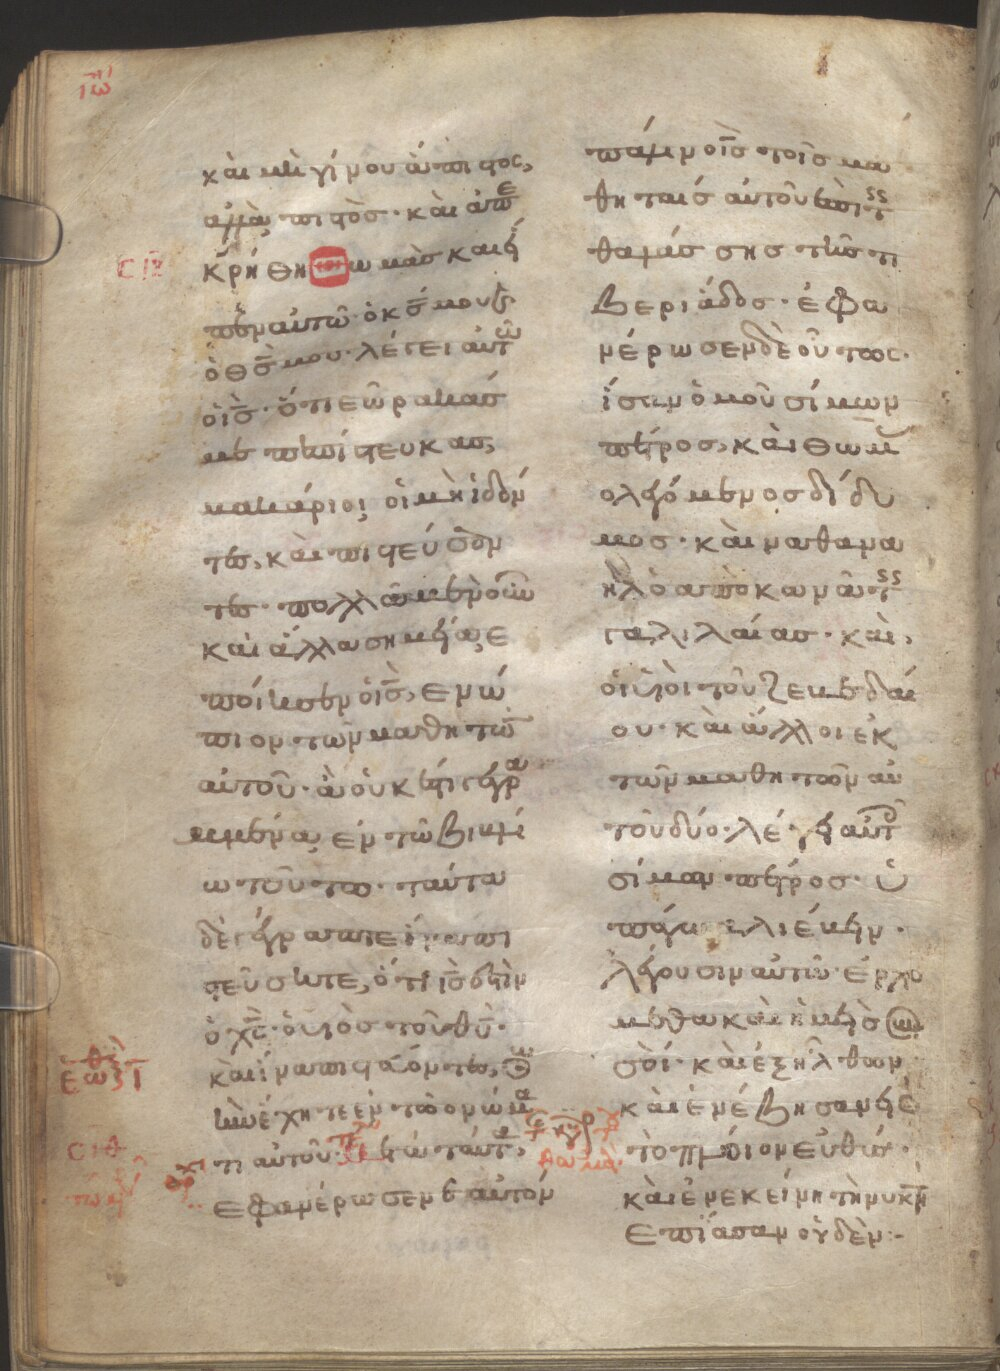 ιω
καὶ μὴ γίνου ἄπιστος,
αλλὰ πιστὸς· καὶ ἀπε
κρήθη θωμὰς καὶ εἶ
πεν αυτῶ· ὁ κς μου κ(αὶ)
ὁ θς μου· λέγει αὐτῶ
ὁ ις· ὅτι εώρακάς
με πεπίστευκας,
μακάριοι οἱ μὴ ἰδόν
τες, καὶ πιστεύσον
τες· πολλὰ μὲν οὖν
καὶ ἄλλα σημεῖα ε
ποίησεν ὁ ις, ενώ
πιον τῶν μαθητῶν
αὐτοῦ· ἃ οὐκ ἔστι γεγρα
μμένα, εν τῶ βιβλί
ω τούτω· ταύτα
δὲ γέγραπται ίνα πι
στεύσητε, ότι ις εστιν
ὁ χς ὁ υιὸς τοῦ θυ·
καὶ ίνα πιστεύοντες, ζω
ὴν έχητε εν τῶ ονόμα
τι αὐτοῦ· τέλ μετὰ ταύτα,
εφανέρωσεν εαυτὸν
πάλιν ὁ ις τοῖς μα
θηταίς αὐτοῦ επὶ τῆς
θαλάσσης τῆς τι
βεριάδος· ἐφα
νέρωσεν δὲ οὕτως·
ήσαν ὁμοῦ σίμων
πέτρος, καὶ θωμᾶς
ο λεγόμενος δίδυ
μος· καὶ ναθανα
ηλ ὁ απὸ κανᾶ τῆς
γαλιλαίας· καὶ,
οἱ υἱοὶ τοῦ ζεβεδαί
ου· καὶ άλλοι εκ
τῶν μαθητῶν αυ
τοῦ δύο· λέγει αὐτοῖς
σίμων πέτρος· ὑ
πάγω αλιεύειν·
λέγουσιν αὐτῶ· έρχό
μεθα καὶ ἡμεῖς σὺν
σοί· καὶ εξῆλθον
καὶ ενέβησαν εἰς
τὸ πλοίον ευθύς·
καὶ εν εκείνη τῆ νυκτὶ
επίασαν οὐδέν:-